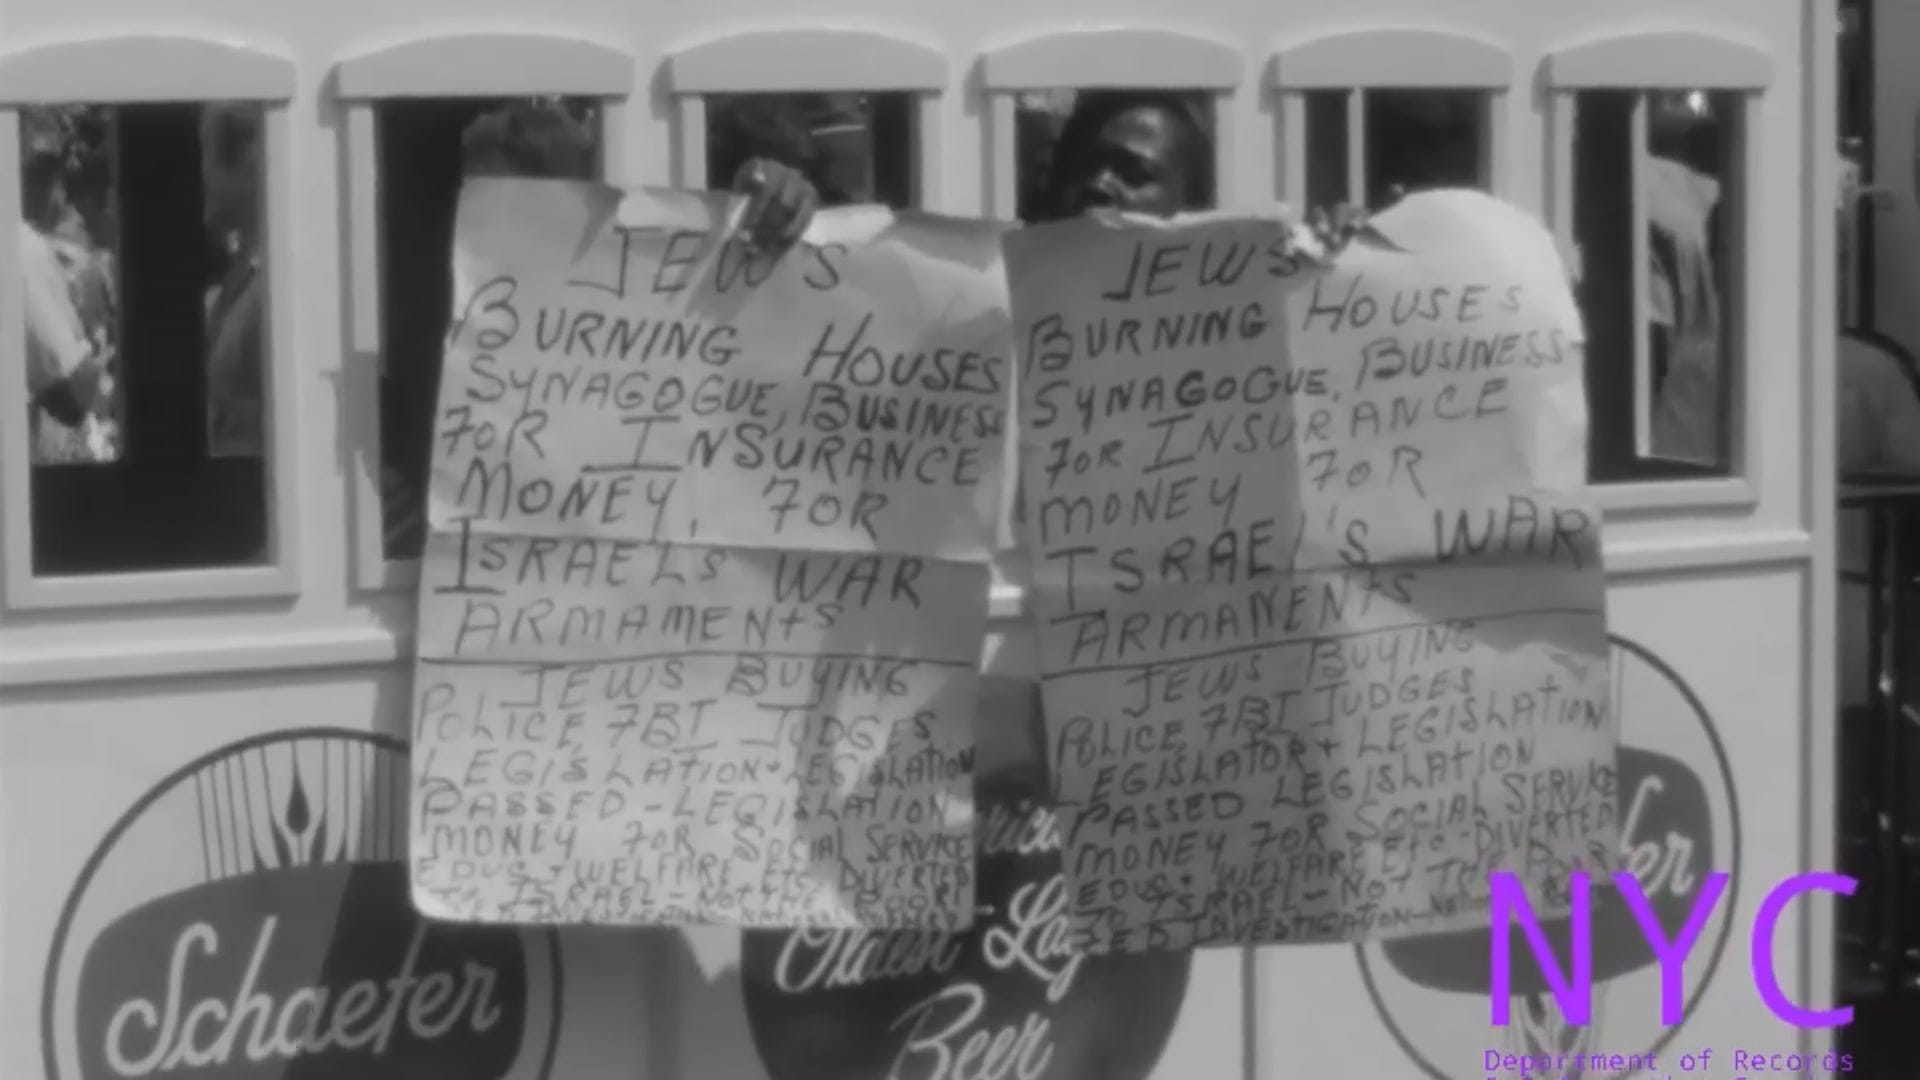 JEWS
BURNING HOUSES
SYNAGOGUE, BUSINESS
FOR INSURANCE
MONEY, FOR
ISRAELS WAR
ARMAMENTS
JEWS BUYING
POLICE FBI JUDGES
LEGISLATION + LEGISLATION
PASSED - LEGISLATION
MONEY FOR SOCIAL SERVICE
EDUC + WELFARE ETC DIVERTED
ISRAEL - NOT THE POOR
JEWS
BURNING HOUSES
SYNAGOGUE, BUSINESS
FOR INSURANCE
MONEY FOR
ISRAEL'S WAR
ARMAMENTS
JEWS BUYING
POLICE FBI JUDGES
LEGISLATOR + LEGISLATION
PASSED LEGISLATION
MONEY FOR SOCIAL SERVICE
EDUC + WELFARE ETC - DIVERTED
TO ISRAEL - NOT THE POOR
INVESTIGATION
Schaefer
Oldest Lag
Beer
fer
NYC
Department of Records